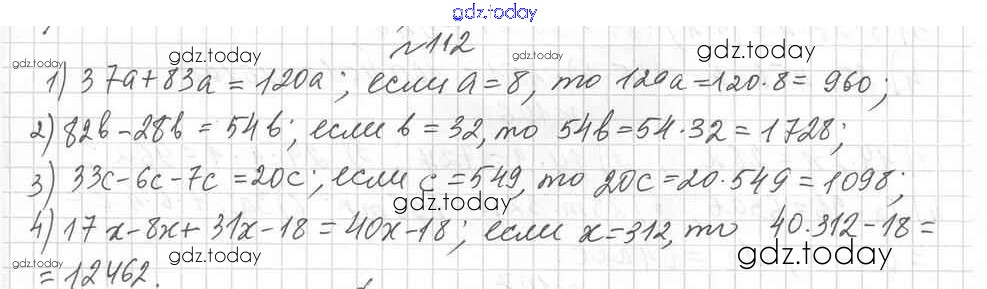 gdz.today
№112
gdz.today gdz.today gdz.today gdz.today
1) 37a+83a=120a; если a=8, то 120a=120·8=960;
2) 82b-28b=54b; если b=32, то 54b=54·32=1728;
3) 33c-6c-7c=20c; если c=549, то 20c=20·549=1098;
gdz.today gdz.today
4) 17x-8x+31x-18=40x-18; если x=312, то 40·312-18=
gdz.today gdz.today gdz.today
=12462.